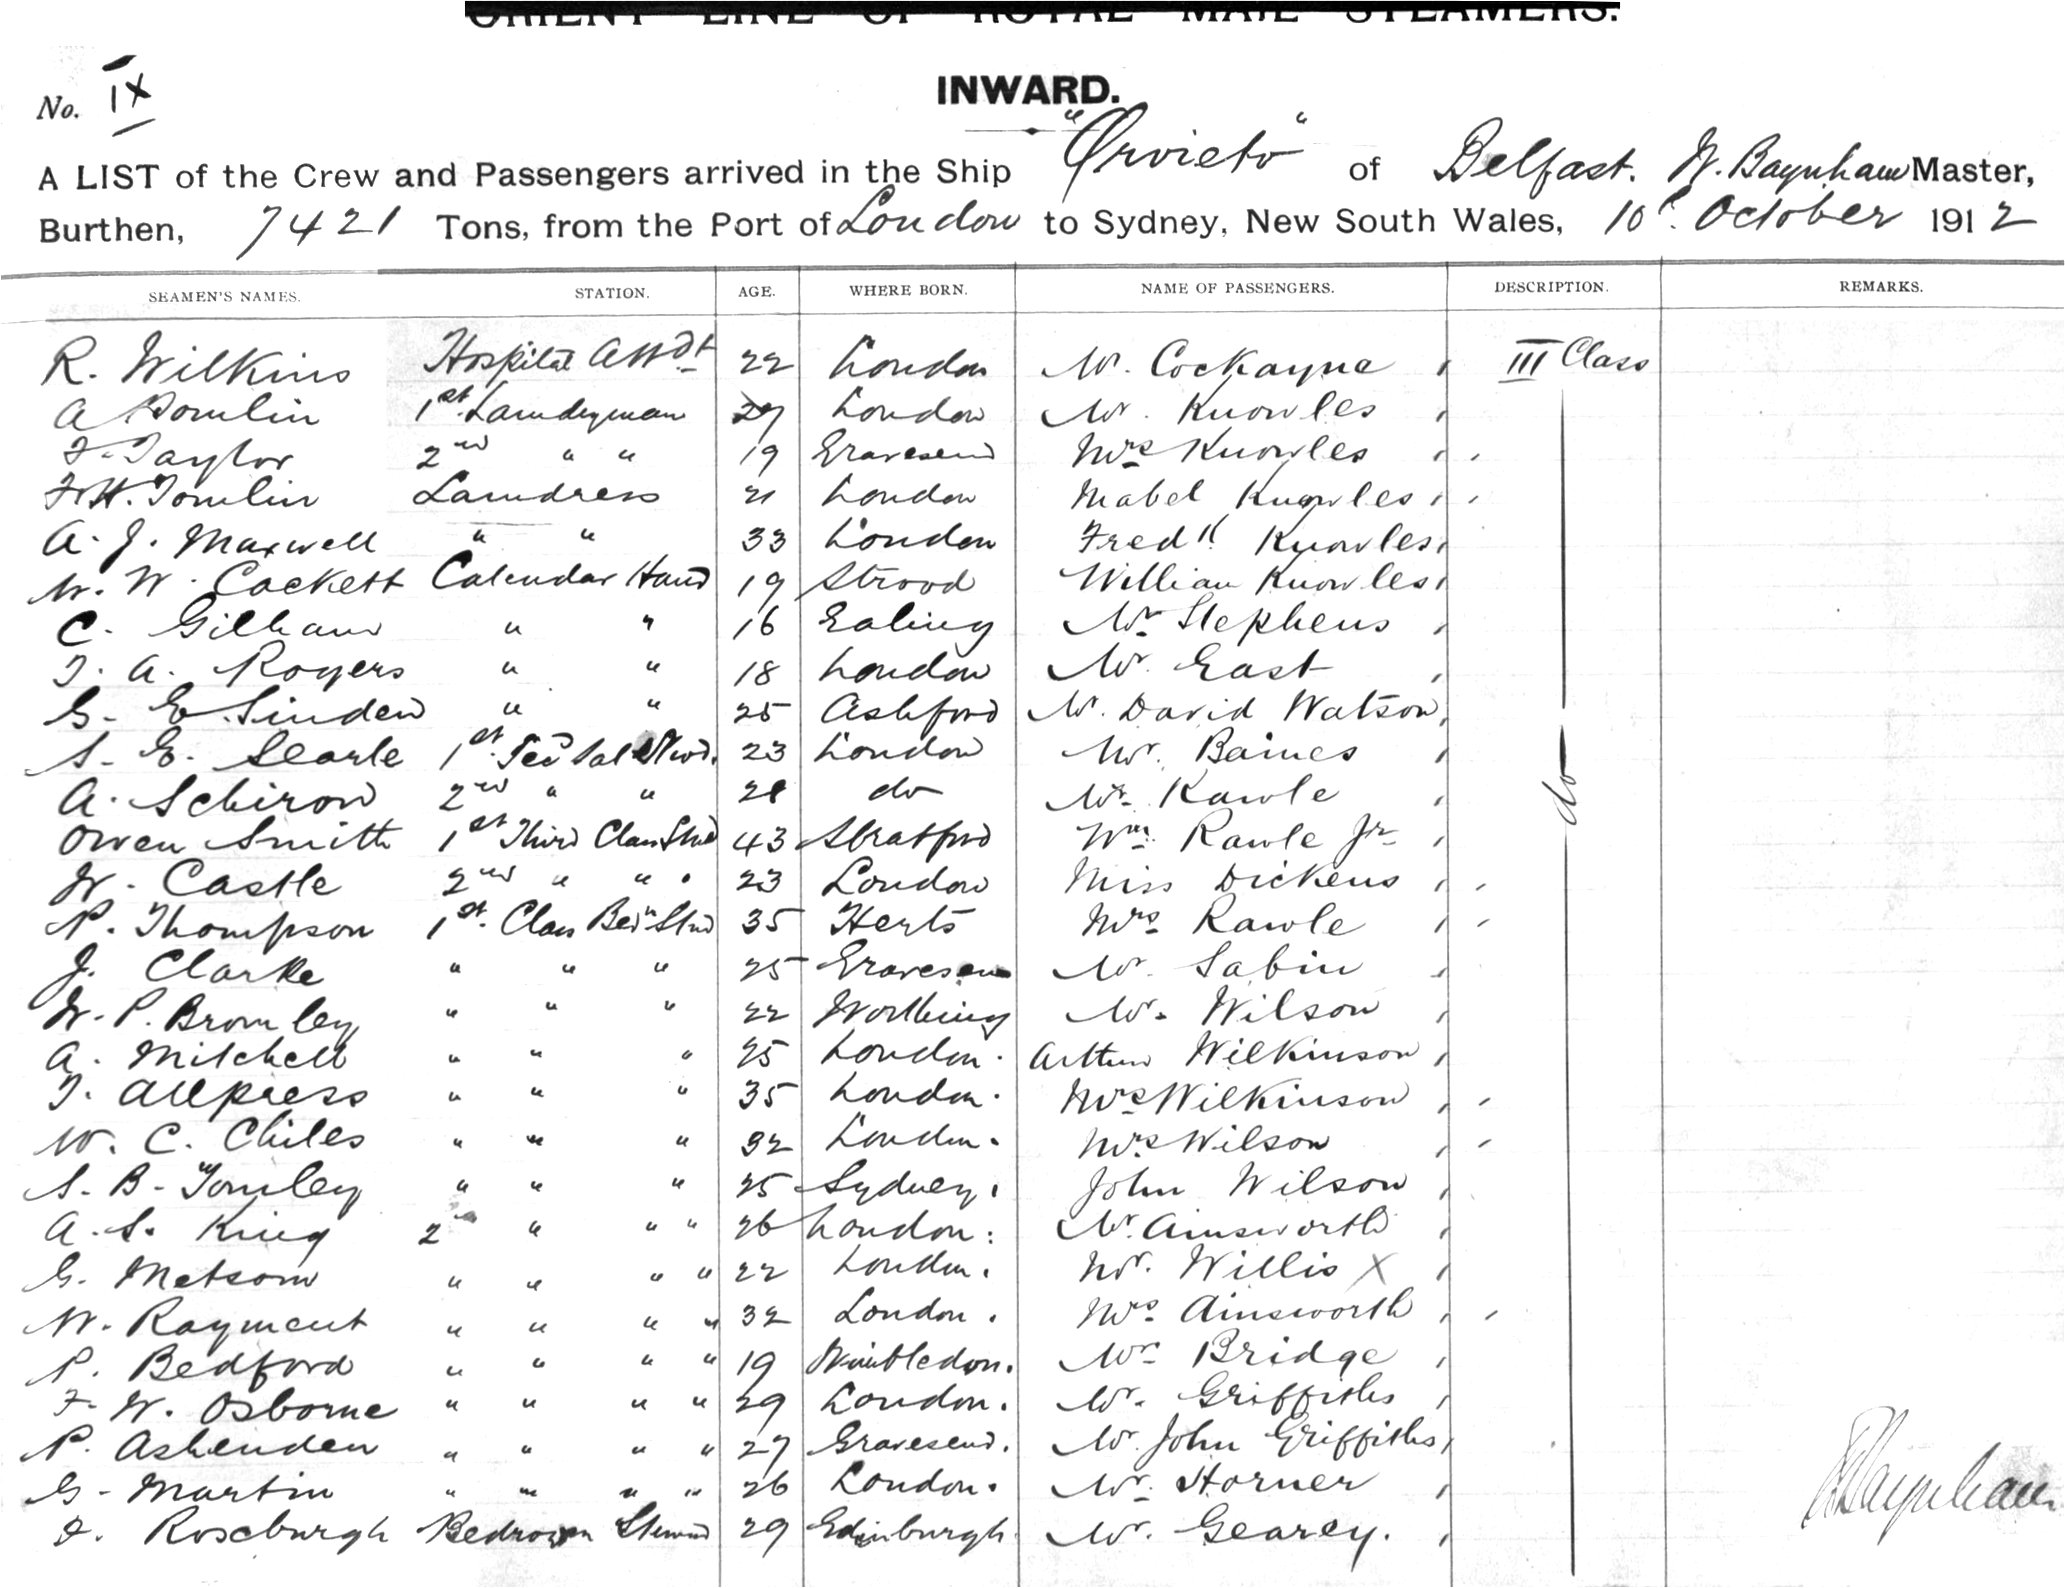 ORIENT LINE OF ROYAL MAIL STEAMERS.
No. IX
INWARD.
A LIST of the Crew and Passengers arrived in the Ship "Orvieto" of Belfast. W. Baynham Master,
Burthen, 7421 Tons, from the Port of London to Sydney, New South Wales, 10th October 1912
SEAMEN'S NAMES. STATION. AGE. WHERE BORN. NAME OF PASSENGERS. DESCRIPTION. REMARKS.
R. Wilkins Hospital Attdt 22 London Mr. Cockayne III Class
A Tomlin 1st Laundryman London Mr. Knowles
F. Taylor 2nd " " 19 Gravesend Mrs Knowles
F. H. Tomlin Laundress 21 London Mabel Knowles
A. J. Maxwell " " 33 London Fredk Knowles
W. W. Cackett Calendar Hand 19 Strood William Knowles
C. Gilham " " 16 Ealing Mr Stephens
T. A. Rogers " " 18 London Mr. East
G. E. Sinden " " 25 Ashford Mr. David Watson
S. E. Searle 1st 23 London Mr. Baines
A. Schirow 2nd " " do Mr. Rawle do
Owen Smith 1st Third Class Stwd 43 Stratford Wm. Rawle Jr
W. Castle 2nd " " 23 London Miss Dickens
P. Thompson 1st Class Bedn Stwd 35 Herts Mrs Rawle
J. Clarke " " " 25 Gravesend Mr. Sabin
W. P. Bromley " " " 22 Worthing Mr. Wilson
A. Mitchell " " " 25 London. Arthur Wilkinson
T. Allpress " " " 35 London. Mrs Wilkinson
W. C. Chiles " " " 32 London. Mrs Wilson
S. B. Tomley " " " 25 Sydney. John Wilson
A. S. King 2nd " " " 26 London. Mr Ainsworth
G. Metsom " " " " 22 London. Mr. Willis X
W. Rayment " " " " 32 London. Mrs Ainsworth
P. Bedford " " " " 19 Wimbledon. Mr Bridge
F. W. Osborne " " " " 29 London. Mr. Griffiths
P. Ashenden " " " " 27 Gravesend. Mr. John Griffiths
G. Martin " " " " 26 London. Mr. Horner
F. Roseburgh Bedroom Steward 29 Edinburgh Mr. Gearey.
W Baynham